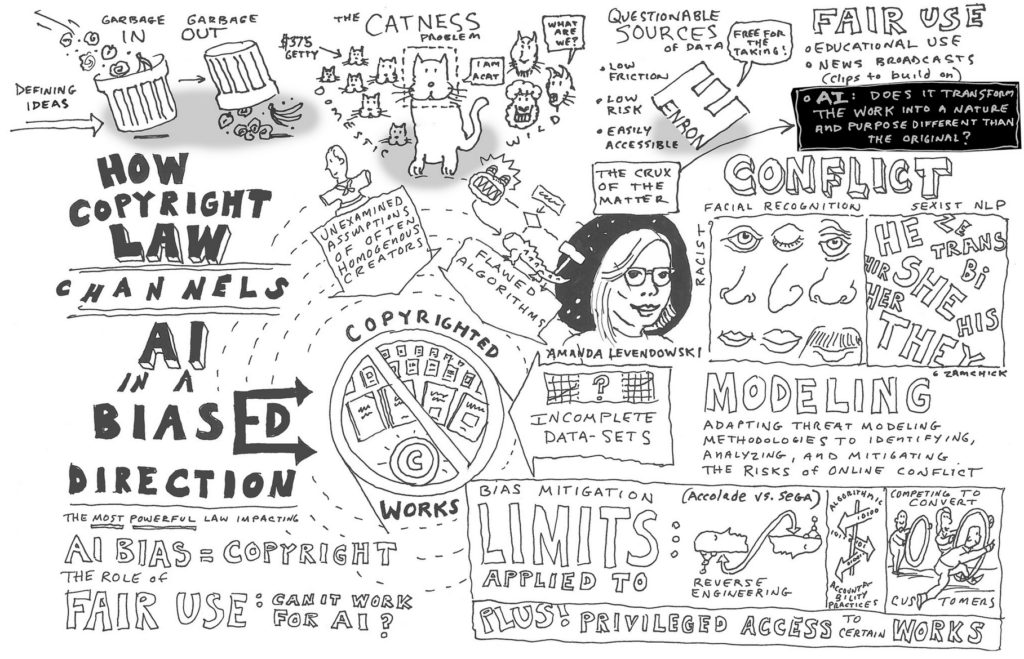 GARBAGE
IN
GARBAGE
OUT
DEFINING
IDEAS
THE
CATNESS
PROBLEM
$375
GETTY
DOMESTIC
I AM
A CAT
WHAT
ARE
WE?
WILD
QUESTIONABLE
SOURCES
OF DATA
• LOW
FRICTION
• LOW
RISK
• EASILY
ACCESSIBLE
FREE FOR
THE
TAKING!
ENRON
FAIR USE
• EDUCATIONAL USE
• NEWS BROADCASTS
(clips to build on)
• AI: DOES IT TRANSFORM
THE WORK INTO A NATURE
AND PURPOSE DIFFERENT THAN
THE ORIGINAL?
THE CRUX
OF THE
MATTER
HOW
COPYRIGHT
LAW
CHANNELS
AI
IN A
BIASED
DIRECTION
THE MOST POWERFUL LAW IMPACTING
AI BIAS = COPYRIGHT
THE ROLE OF
FAIR USE: CAN IT WORK
FOR AI?
UNEXAMINED
ASSUMPTIONS
OF OFTEN
HOMOGENOUS
CREATORS
FLAWED
ALGORITHMS
AMANDA LEVENDOWSKI
COPYRIGHTED
©
WORKS
?
INCOMPLETE
DATA-SETS
CONFLICT
FACIAL RECOGNITION
SEXIST NLP
RACIST
HE ZE
TRANS
HIR SHE Bi
HER
HIS
THEY
G ZAMCHICK
MODELING
ADAPTING THREAT MODELING
METHODOLOGIES TO IDENTIFYING,
ANALYZING, AND MITIGATING
THE RISKS OF ONLINE CONFLICT
BIAS MITIGATION
LIMITS:
APPLIED TO
(Accolade vs. SEGA)
REVERSE
ENGINEERING
ALGORITHMIC
ACCOUNTA-
BILITY
PRACTICES
COMPETING TO
CONVERT
CUSTOMERS
PLUS! PRIVILEGED ACCESS TO CERTAIN WORKS